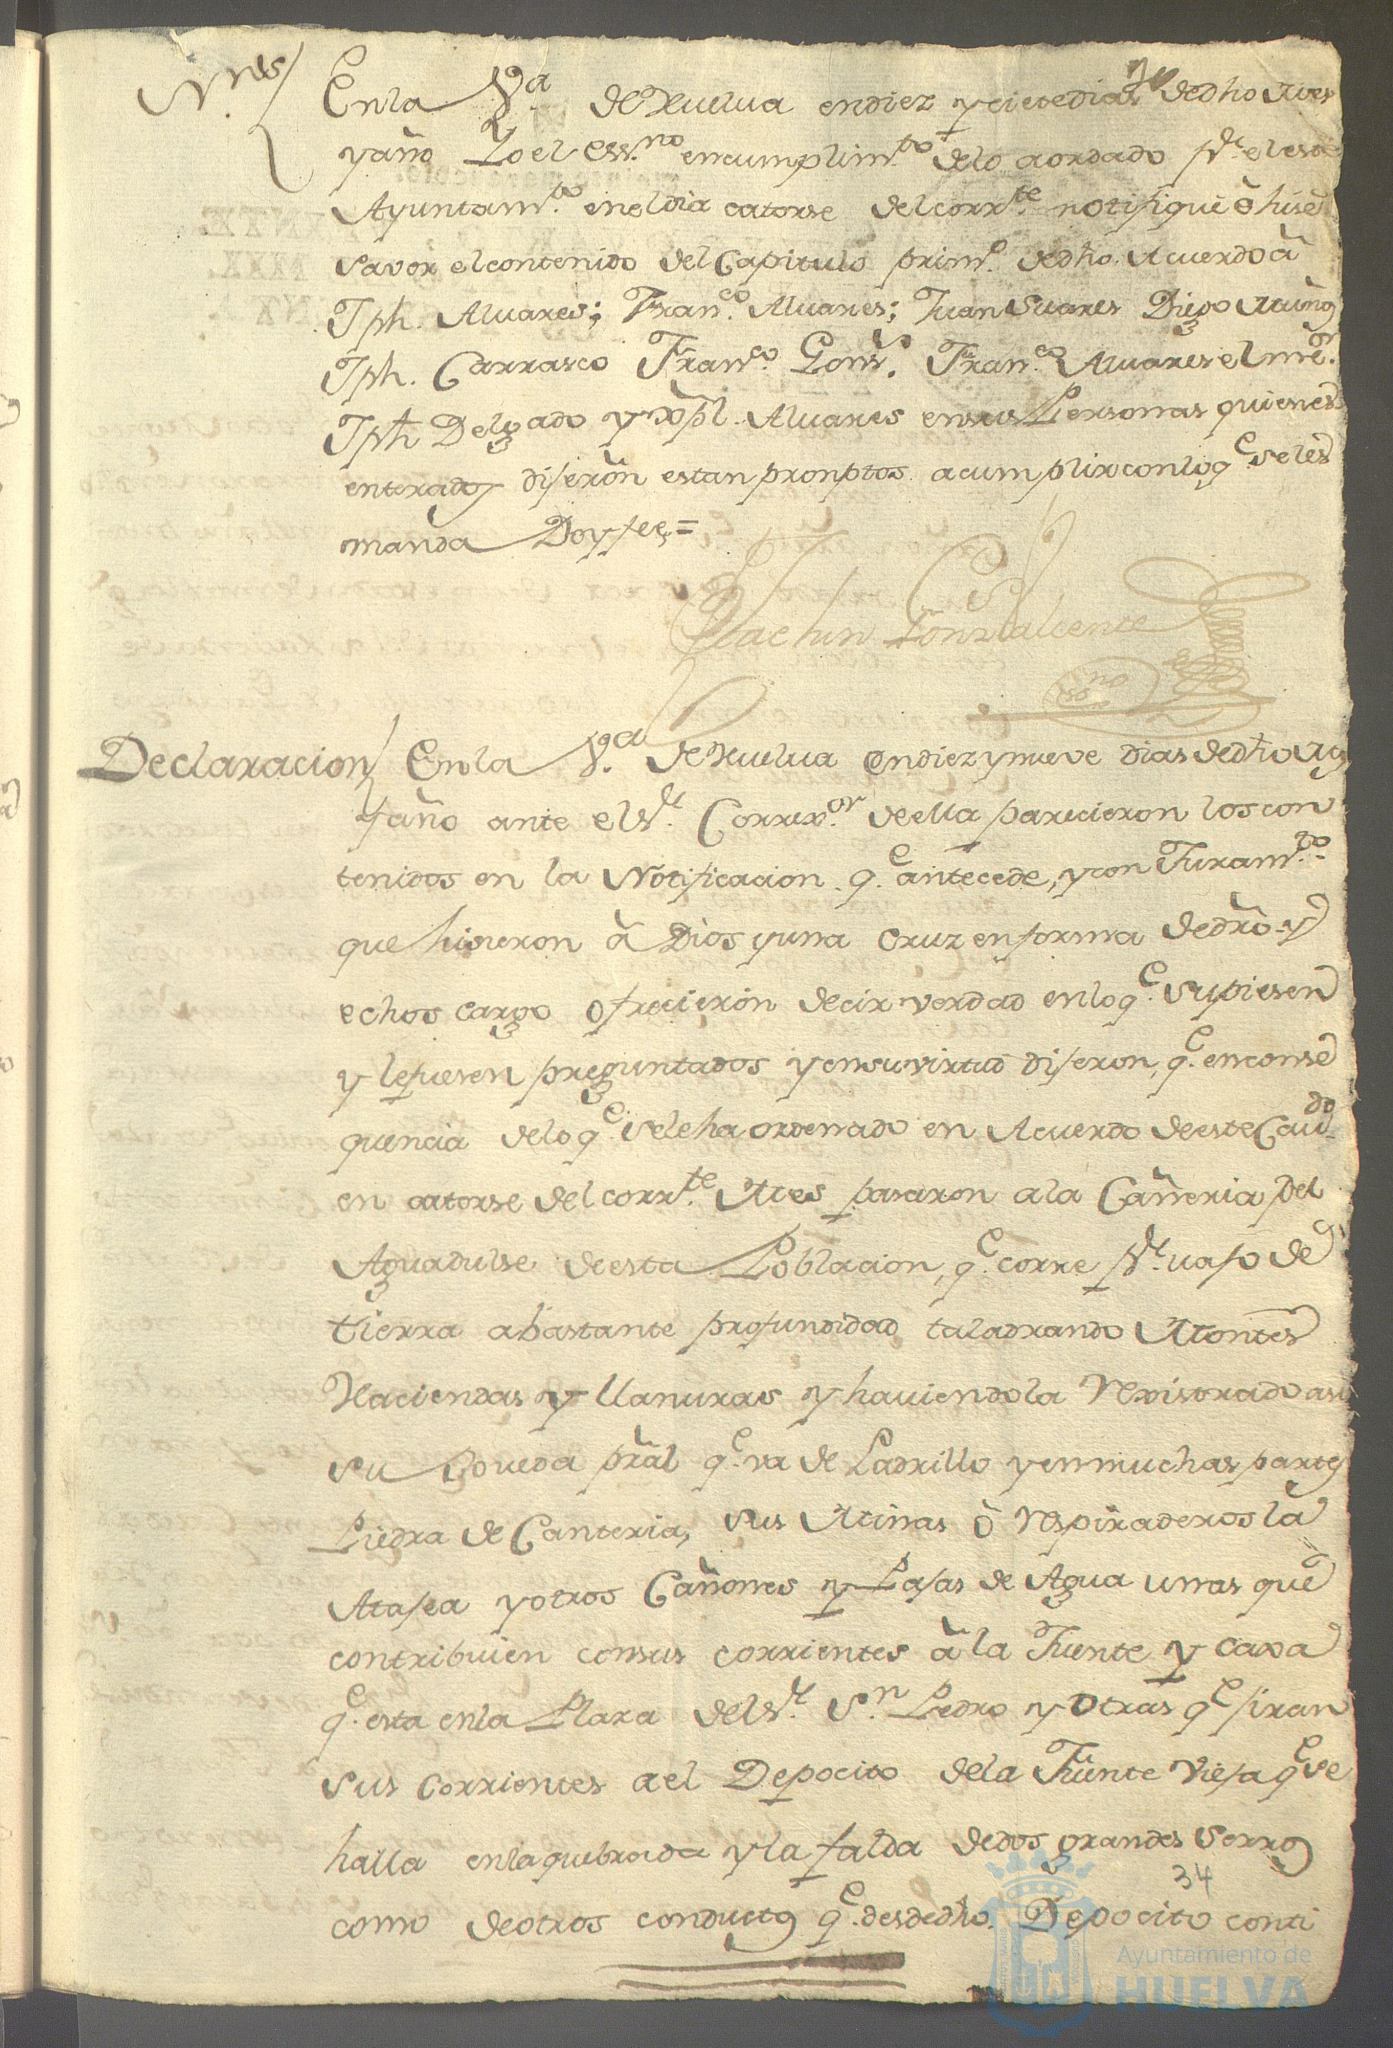 Nn.es
En la V.a de Huelva en diez y ciete dias de dho Mes
y año Yo el ess.no en cumplim.to de lo acordado p.r el este
Ayuntam.to en el dia catorse del corr.te notifiquè ò hise
saver el contenido del Capitulo prim.o de dho Acuerdo à
Jph. Alvares; Fran.co Alvares; Juan Suares Diego Muños
Jph. Carrasco Fran.co Gons.s Fran.co Alvares el me.or
Jph Delgado y Xpl. Alvares en sus Personas quienes
enterados dijeron estan promptos a cumplir con lo q.e se les
manda Doy fee=
Joachin Gonz Valiente
ess.no
Declaracion En la V.a de Huelva en diez y nueve dias de dho Mes
y año ante el S.r Correx.or de ella parecieron los con
tenidos en la Notificacion q.e antecede, y con Juram.to
que hisieron à Dios y una cruz en forma de dro y
echos cargo ofrecieron decir verdad en lo q.e supiesen
y le fuesen preguntados y en su virtud dijeron, q.e en conse
quencia de lo q.e se le ha ordenado en Acuerdo de este Cavd.o
en catorse del corr.te Mes pasaron a la Cañeria del
Agua dulse de esta Poblacion, q.e corre p.r vajo de
tierra a bastante profundidad taladrando Montes
Haciendas y llanuras y haviendola rexistrado asi
su Boveda pral q.e va de Ladrillo y en muchas partes
Piedra de Canteria, sus Minas ò respiraderos la
Atajea y otros Cañones y Lajas de Agua unas que
contribuien con sus corrientes à la Fuente y caxa
q.e esta en la Plaza del S.r S.n Pedro y otras q.e jiran
sus corrientes a el Depocito de la Fuente Vieja q.e se
halla en la quebrada y la falda de dos grandes serros
como de otros conductos q.e desde dho Depocito conti
34
Ayuntamiento de
HUELVA